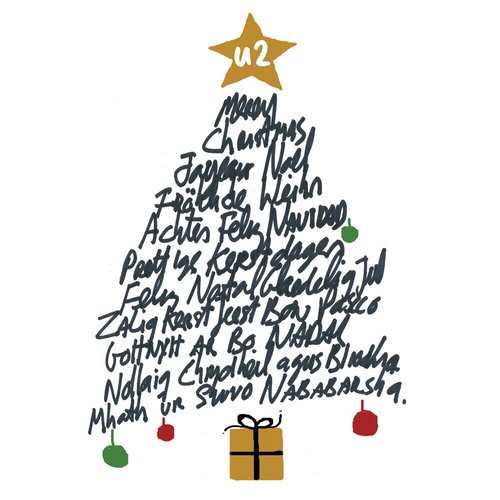 U2
Merry
Christmas
Joyeux Noel
Fröhliche Weihn
Achten Feliz NAVIDAD
Prettige Kerstdagen
Feliz Natal Gledelig Jul
Zalig Kerstfeest Bon Pasco
GOTTNYTT AR Bo NADAL
Nollaig Chridheil agus Bliadhna
Mhath UR Suvo NABABARSHA.